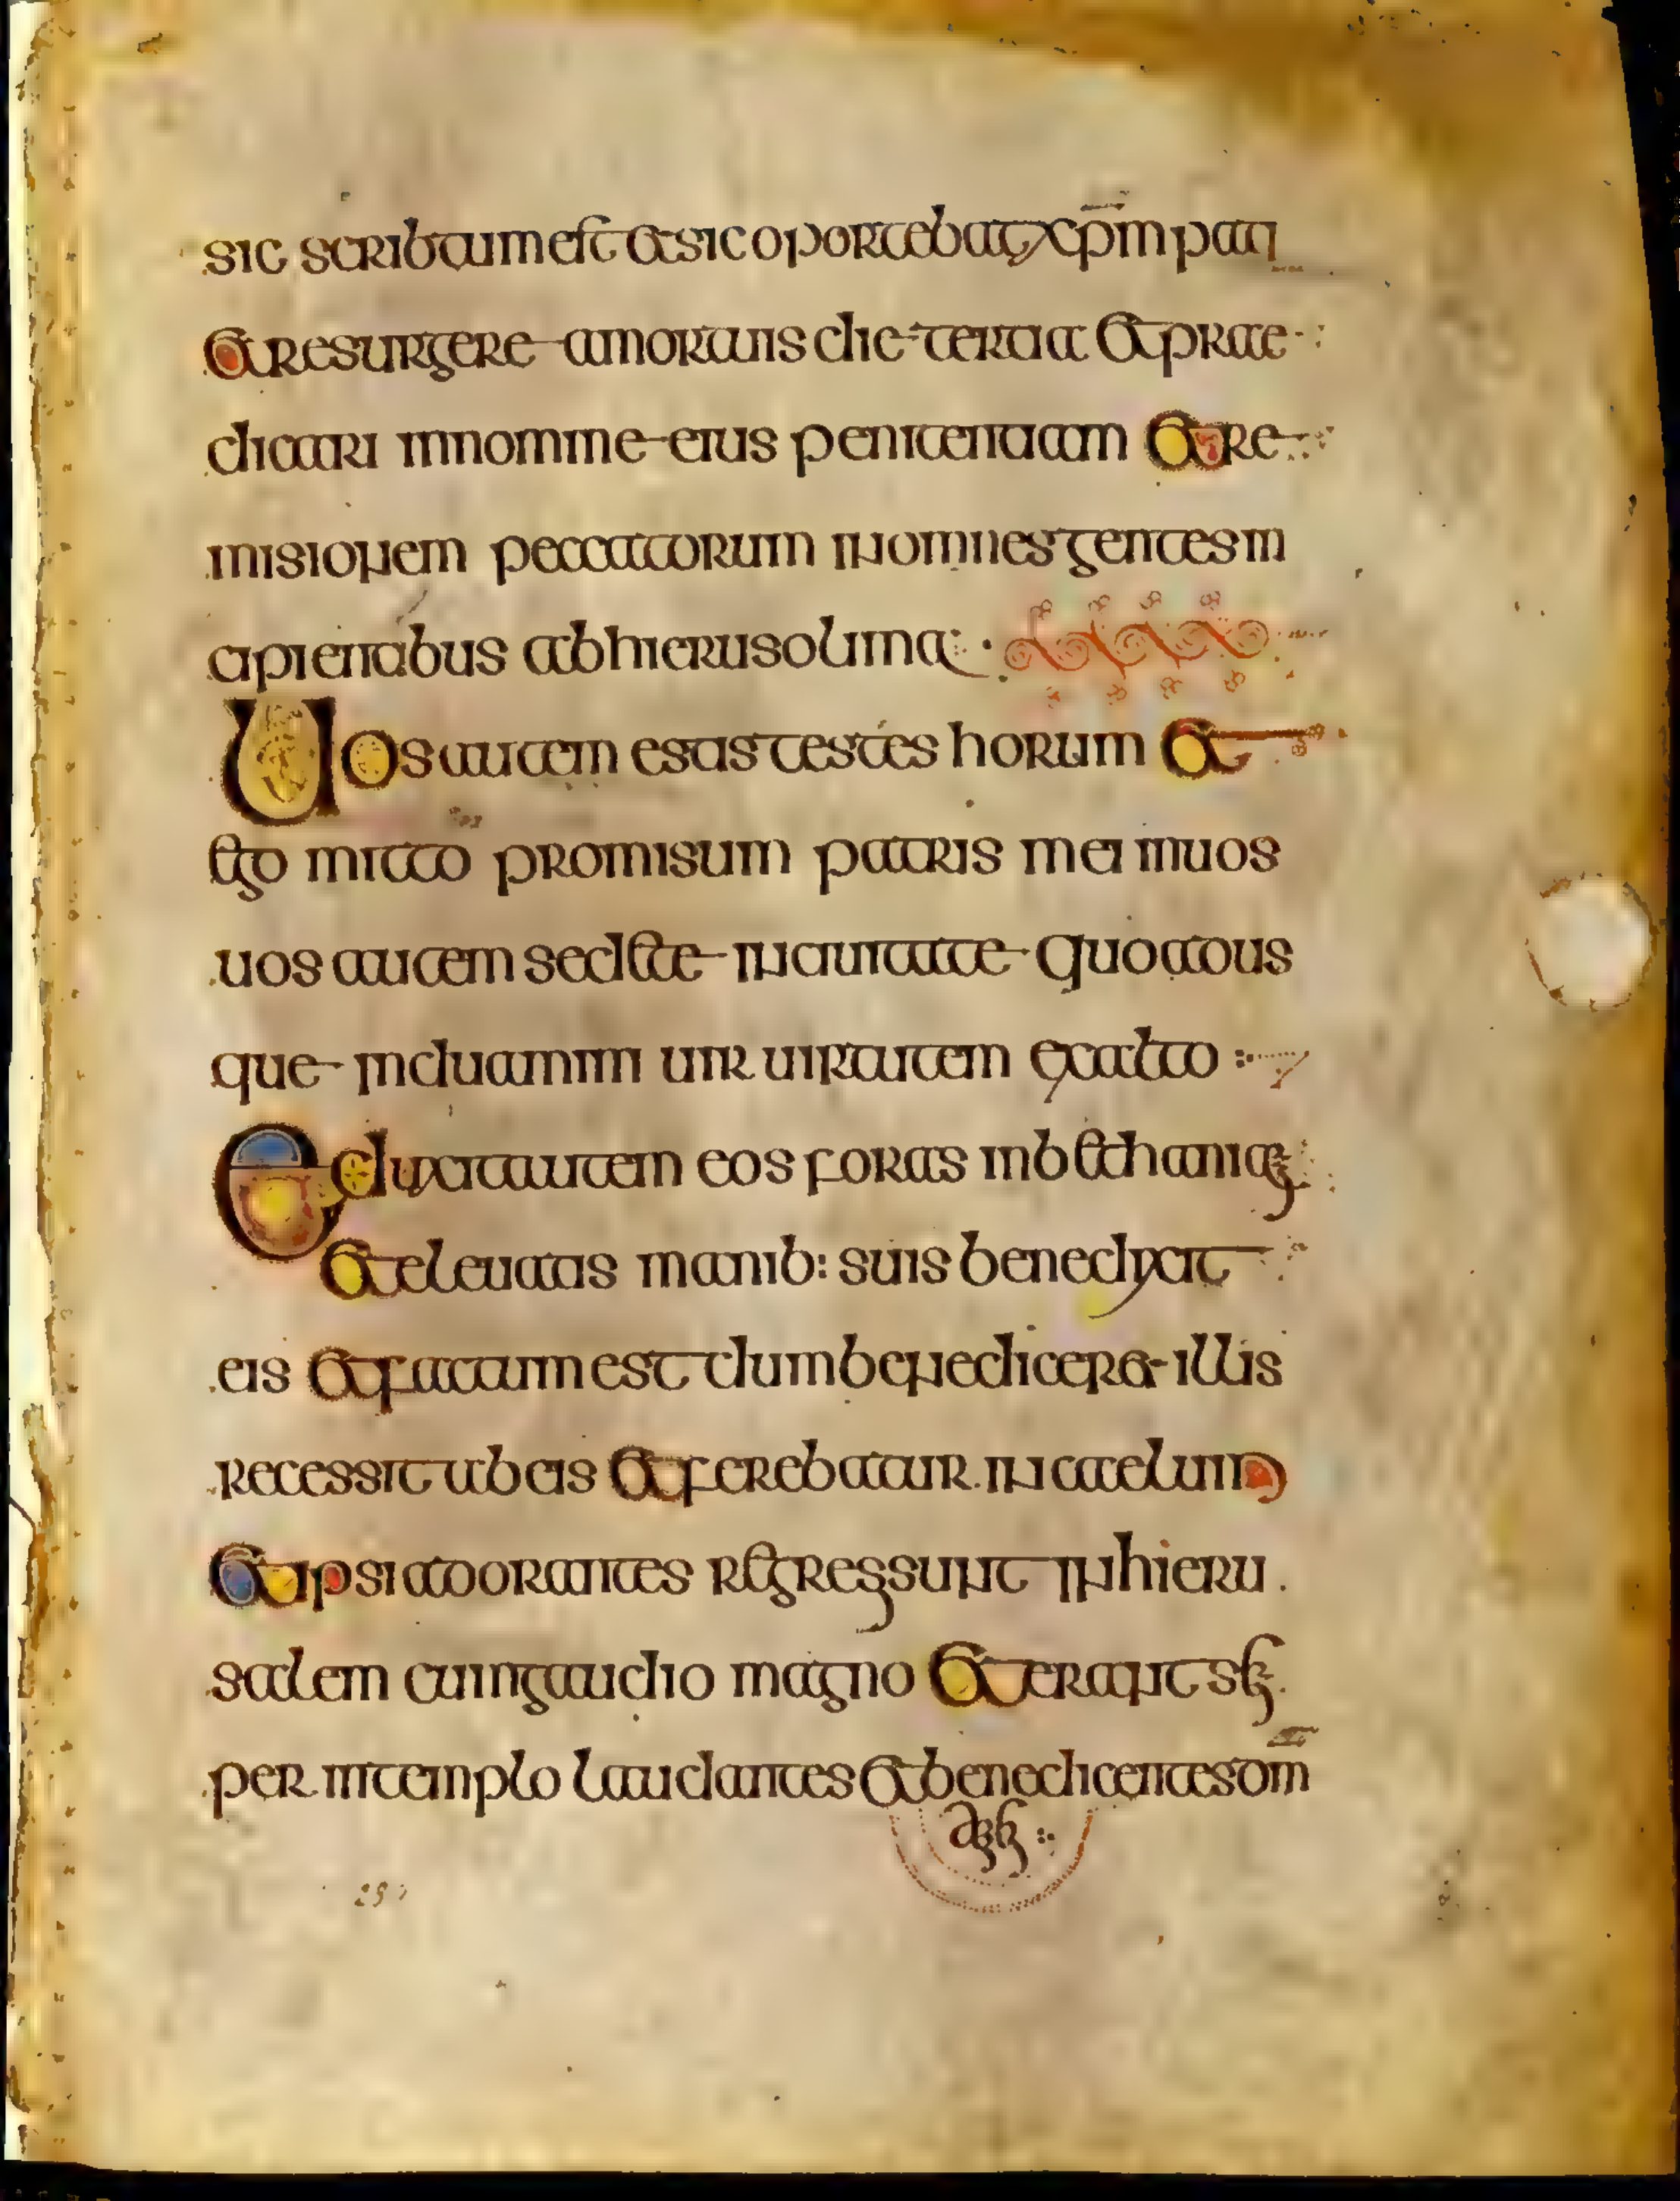 sic scribtum est et sic oportebat xp̄m pati
et resurgere a mortuis die tertia et prae
dicari in nomine eius penitentiam et re
misionem peccatorum in omnes gentes in
cipientibus ab hierusolima
Uos autem estis testes horum et
ego mitto promisum patris mei in uos
uos autem sedete in ciuitate quo adus
que induamini uir uirtutem ex alto
Eduxit autem eos foras in bethania
et eleuatis manib: suis benedixit
eis et factum est dum benediceret illis
recessit ab eis et ferebatur in caelum
et ipsi adorantes regressi sunt in hieru
salem cum gaudio magno et erant sē
per in templo laudantes et benedicentes dm̄